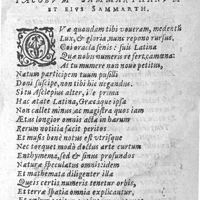 IACOBVM SAMMARTHANVM
ET EIVS SAMMARTH.
Væ quædam tibi voueram, medentũ
Lux, & gloria, nunc repono rursus,
oracla senis: sui Latina
Qua nobis numeris refert, camæna:
At tu munere nan nouo petitus,
Natum participem tuum pusilli
Doni suscipe, non tibi hic negandus.
Situ Æsclepius alter, is
Hac ætate Latina, Græcaque ipsa
Non callet minus, ac magistra quos iam
Ætas longior omnis acta in harum
Rerum notitia facit peritos
Et musis benè notus est vtrisque
Nec torquet modò doctus arte curtum
Enthymema, sed & sinus profundos
Naturæ speculatus omnitidem
Et mathemata diligenter illa
Queis certis numeris tenetur orbis,
Et terra spatia omnia explicantur,